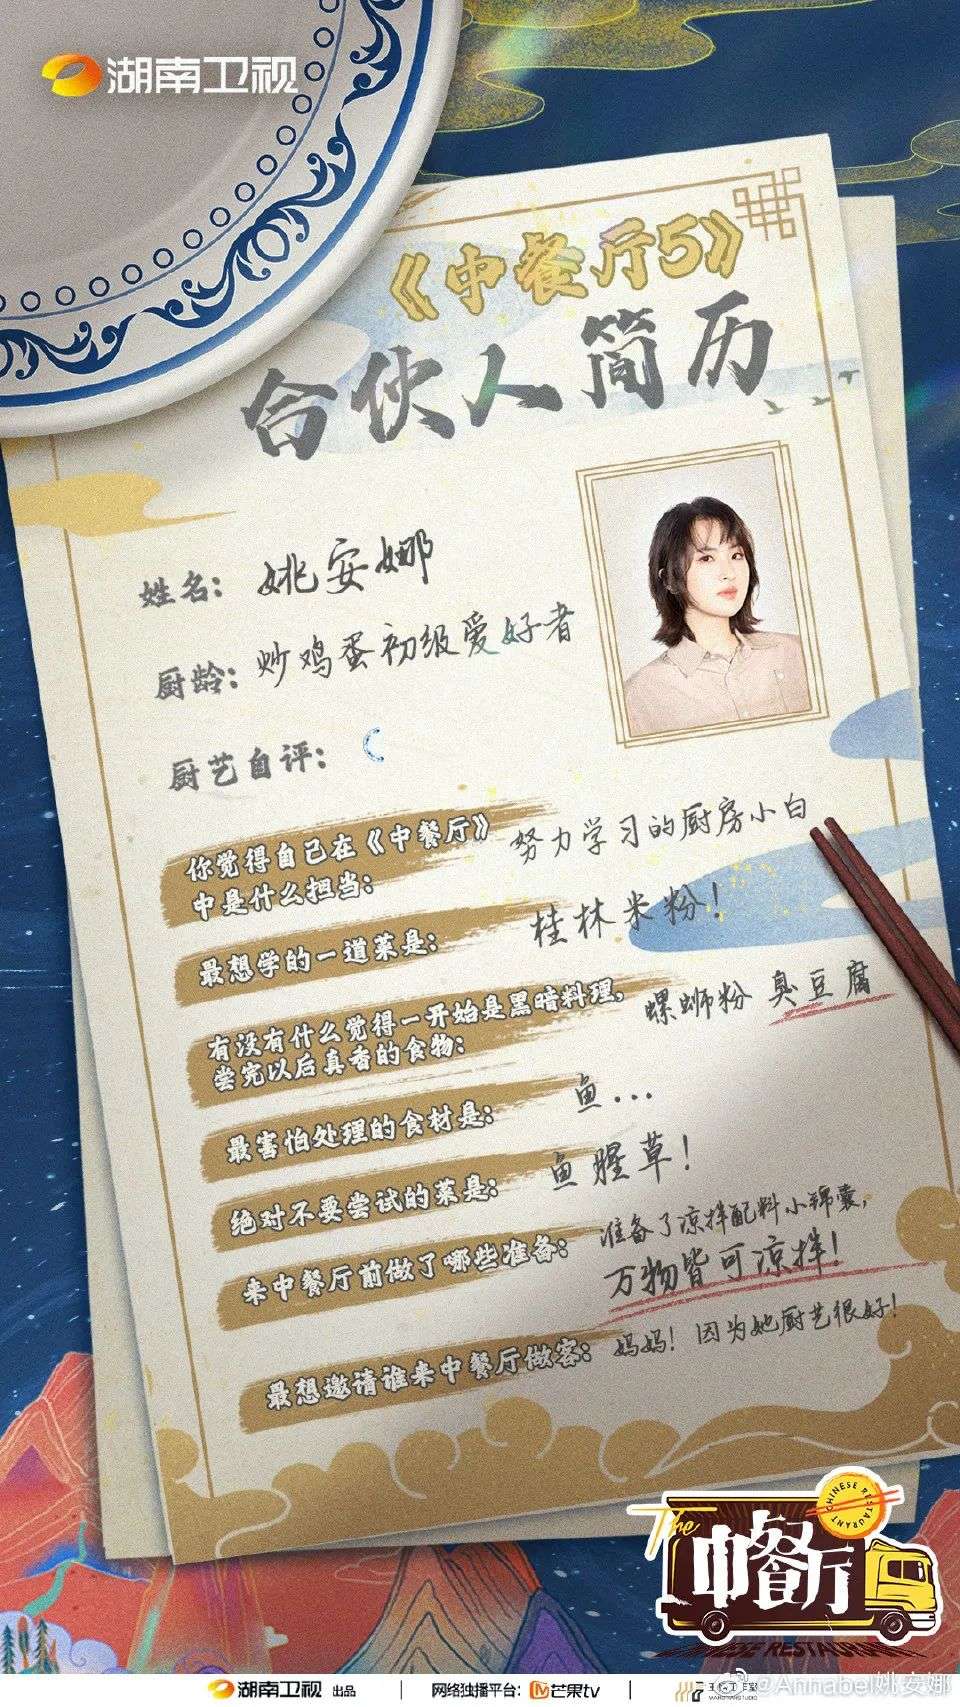 湖南卫视
《中餐厅5》
合伙人简历
姓名：姚安娜
厨龄：炒鸡蛋初级爱好者
厨艺自评：
你觉得自己在《中餐厅》
中是什么担当：
努力学习的厨房小白
最想学的一道菜是：
桂林米粉！
有没有什么觉得一开始是黑暗料理，
尝完以后真香的食物：
螺蛳粉 臭豆腐
最害怕处理的食材是：
鱼...
绝对不要尝试的菜是：
鱼腥草！
来中餐厅前做了哪些准备：
准备了凉拌配料小锦囊，
万物皆可凉拌！
最想邀请谁来中餐厅做客：
妈妈！因为她厨艺很好！
CHINESE RESTAURANT
The
中餐厅
CHINESE RESTAURANT
湖南卫视 出品
网络独播平台：芒果tv
@Annabel姚安娜